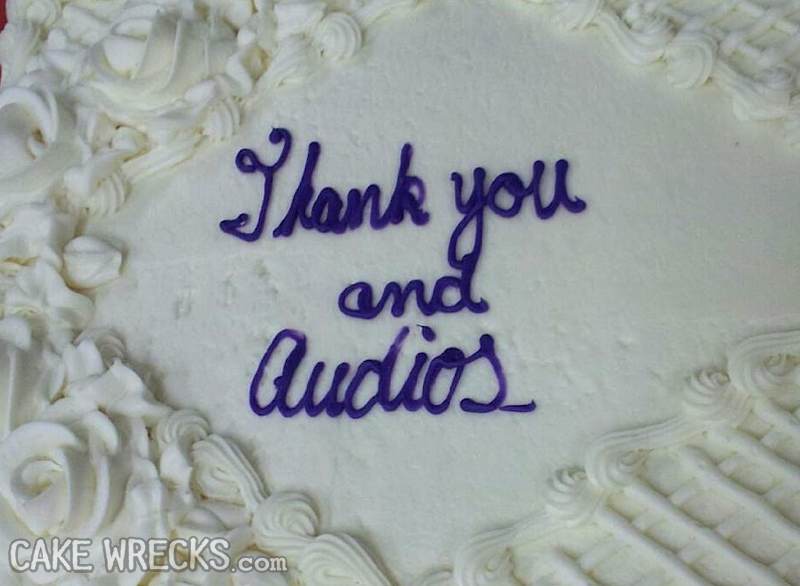 Thank you
and
Audios
CAKE WRECKS.com